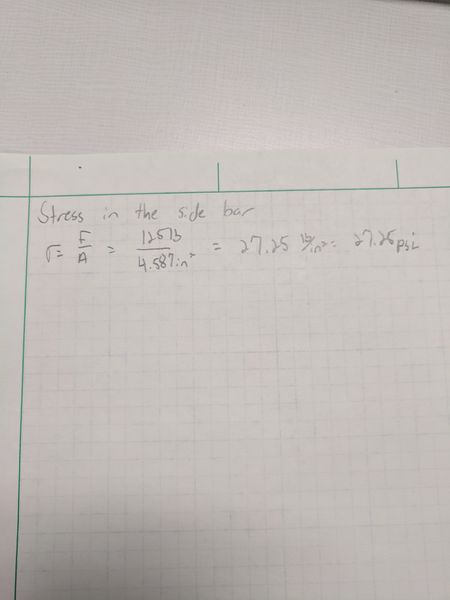 Stress in the side bar
σ = F/A = 125lb/4.587in² = 27.25 lb/in² = 27.25 psi